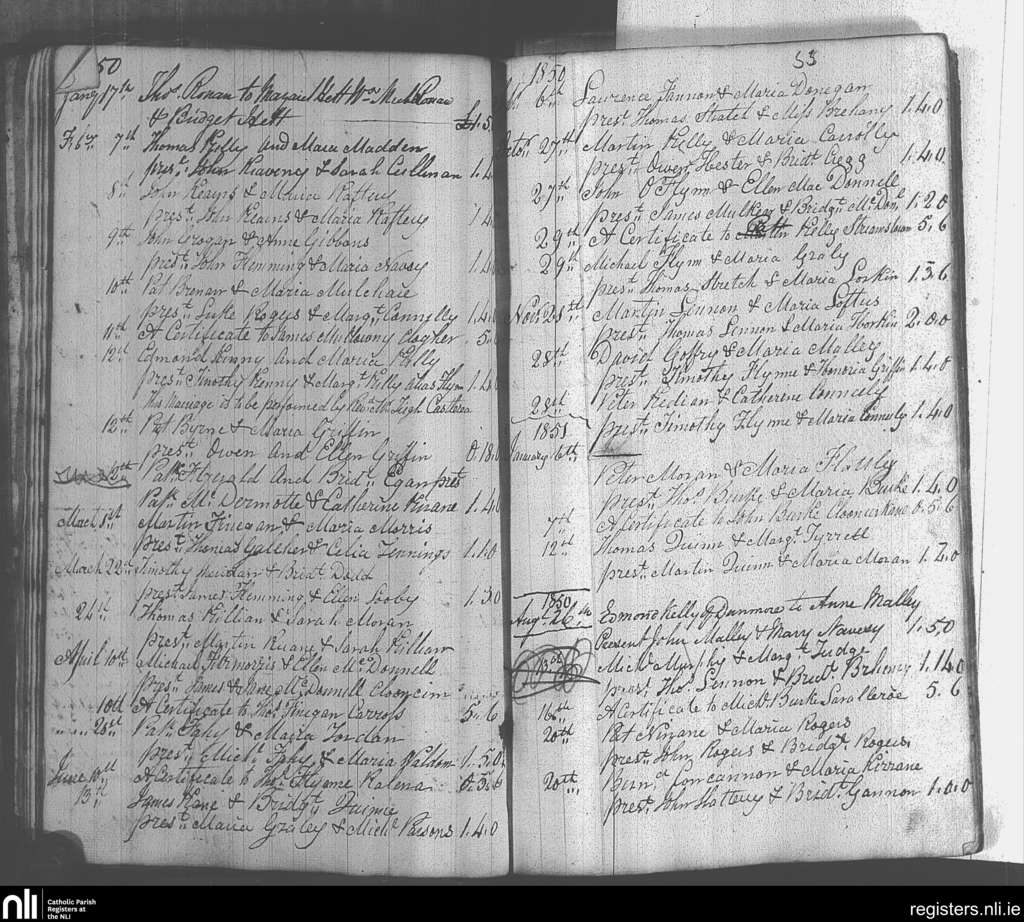 50
Jany 17th Thos. Ronan to Margaret Hett Wn. Michl Ronan
& Bridget Hett £1.5
Feby 7th Thomas Kelly and Maria Madden
prest. John Keaveney & Sarah Cullinan 1.4
8th John Kearns & Maria Raftery
prest. John Kearns & Maria Raftery 1.4
9th John Grogan & Anne Gibbons
prest. John Flemming & Maria 1.4.0
10th Pat Brenan & Maria Mulchaie
prest. Luke Rogers & Margt. Connelly 1.4.0
11th A Certificate to James Clogher 5.6
12th Edmond and Maria Kelly
prest. Timothy Kenny & Margt. Kelly alias Flynn 1.4.0
this Marriage is to be performed by Revd. Castlerea
12th Pat Byrne & Maria Griffin
prest. Owen and Ellen Griffin 0.18.0
12th Patk. Fitzerald and Bridt. Egan prest
Patk. McDermotte & Catherine Kinane 1.4.0
March 1st Martin Finegan & Maria Morris
prest. Thomas Galeher & Celia Jennings 1.1.0
March 22nd Timothy & Bridt. Dodd
prest. James Flemming & Ellen Scoby 1.3.0
24th Thomas Killian & Sarah Moran
prest. Martin Ruane & Sarah Killian
April 10th Michael Fitzmorris & Ellen McDonnell
prest. James & Jane McDonnell Clooncin
10th A Certificate to Thos. Finegan Carrols 5.6
28th Patk. Fahy & Maria Jordan
prest. Michl. Fahy & Maria Waldron 1.5.0
June 10th A Certificate to Thos. Flynne Kalena 0.5.6
13th James Kane & Bridgt. Quinne
prest. Maria Graley & Michl. Parsons 1.4.0
53
1850
6th Lawrence Fannon & Maria Donegan
prest. Thomas & Miss Brehany 1.4.0
Octor. 27th Martin Kelly & Maria Carolly
prest. Owen Hester & Bridt. Cregg 1.4.0
27th John O'Flynn & Ellen Mac Donnell
prest. James Mulkeey & Bridgt. McDonl 1.2.0
29th A Certificate to Kelly 5.6
29th Michael Flynn & Maria Graly
prest. Thomas Stretch & Maria Lorkin 1.3.6
Novr. 28th Martin Lennon & Maria Loftus
prest. Thomas Lennon & Maria Horkin 2.0.0
28th David Goffry & Maria Malley
prest. Timothy Flynne & Honoria Griffin 1.4.0
28th Peter Kedian & Catherine Conneely
prest. Timothy Flynne & Maria Conneely 1.4.0
1851
January 6th Peter Moran & Maria Flattly
prest. Thos. Burke & Maria Burke 1.4.0
7th A Certificate to John Burke 0.5.6
12th Thomas Quinn & Margt. Tyrrell
prest. Martin Quinn & Maria Moran 1.2.0
1850
Augt. 26th Edmond Kelly of Dunmore to Anne Malley
Present John Malley & Mary Navesy 1.5.0
13th Michl. Murphy & Margt. Judge
prest. Thos. Lennon & Bridt. Breheney 1.14.0
16th A Certificate to Michl. Burke 5.6
20th Pat & Maria Rogers
prest. John Rogers & Bridgt. Rogers
20th Concannon & Maria Kerrane
prest. John Slattery & Bridt. Gannon 1.0.0
nli
Catholic Parish
Registers at
the NLI
registers.nli.ie